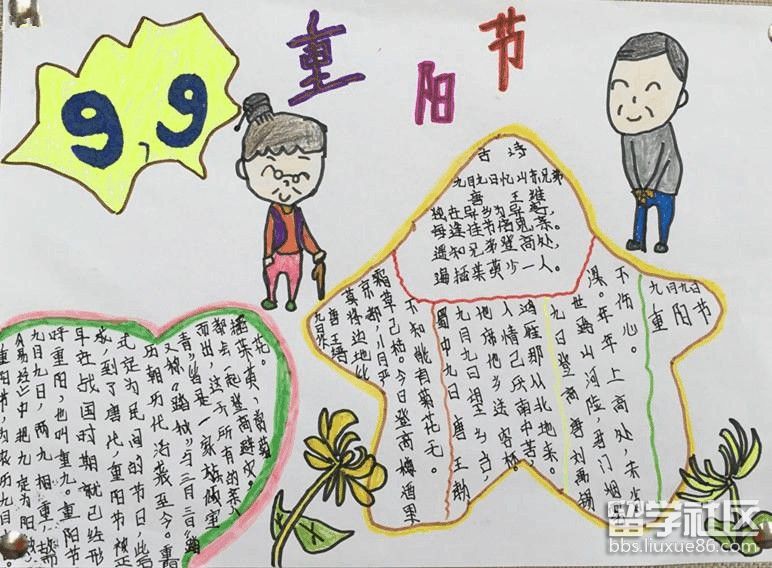 9,9
重阳节
古诗
九月九日忆山东兄弟
唐 王维
独在异乡为异客，
每逢佳节倍思亲。
遥知兄弟登高处，
遍插茱萸少一人。
九月九日
重阳节
九日登高 唐 刘禹锡
世路山河险，君门烟
深。年年上高处，未省
不伤心。
蜀中九日 唐 王勃
九月九日望乡台，
他席他乡送客杯。
人情已厌南中苦，
鸿雁那从北地来。
九日作
唐 王缙
莫将边地比
京都，八月严
霜草已枯。今日登高樽酒里
不知能有菊花无。
重阳节，为农历九月
《易经》中把九定为阳数，
九月九日，两九相重，故
呼重阳，也叫重九。重阳节
早在战国时期就已经形
成，到了唐代，重阳节被正
式定为民间的节日，此后
历朝历代沿袭至今。重
又称"踏秋"与三月三日"踏
春"皆是一家族倾室
而出，这天所有的亲人
都会一起登高避灾，
插茱萸、赏菊
花。
留学社区
bbs.liuxue86.com